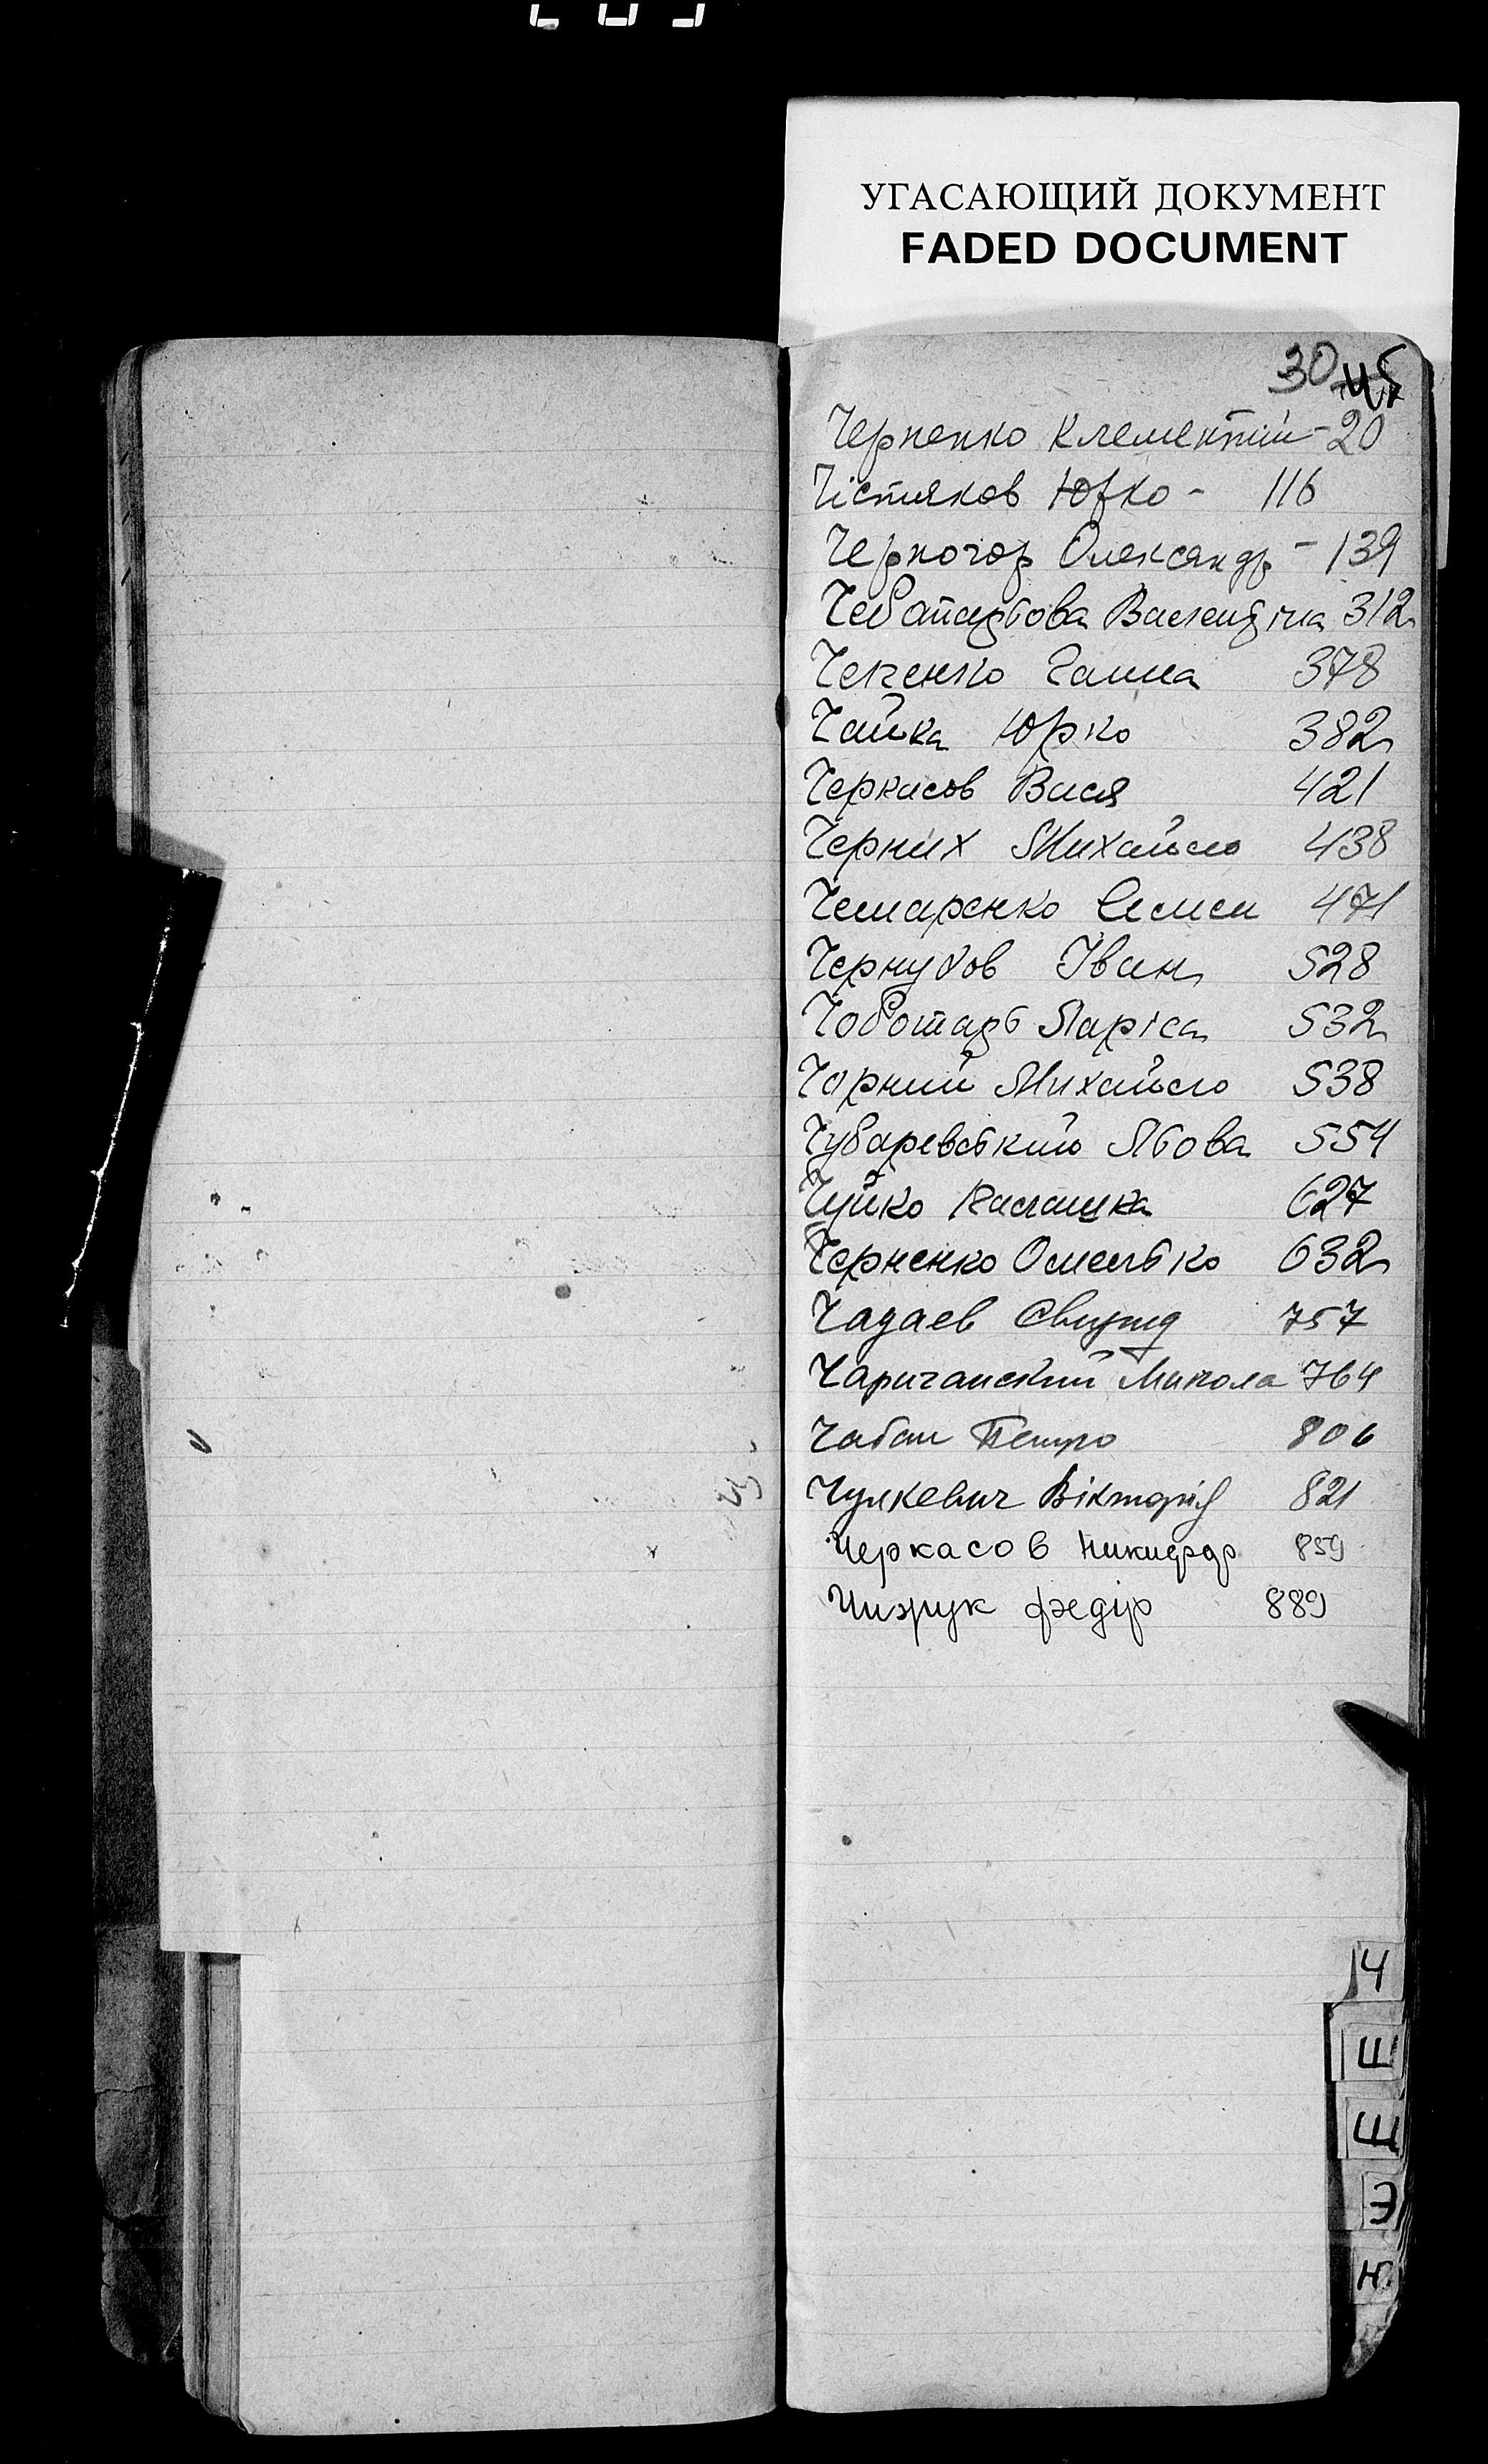 УГАСАЮЩИЙ ДОКУМЕНТ
FADED DOCUMENT
30
Черненко Клементій - 20
Чістяков Юрко - 116
Черногор Олександр - 139
Чеботарьова Валентіна 312
Чекенко Ганна 378
Чайка Юрко 382
Черкасов Вася 421
Черних Михайло 438
Чемаренко Семен 471
Чернубов Іван 528
Чоботарь Ларіса 538
Чорний Михайло 538
Чубаревський Льова 554
Чуйко 627
Черненко Омелько 632
Чадаев Свирид 757
Чаричанский Микола 764
Чабан Петро 806
Чулкевич Вікторія 821
Черкасов Никифор 859
Чизрук Федір 889
Ч
Ш
Щ
Э
Ю